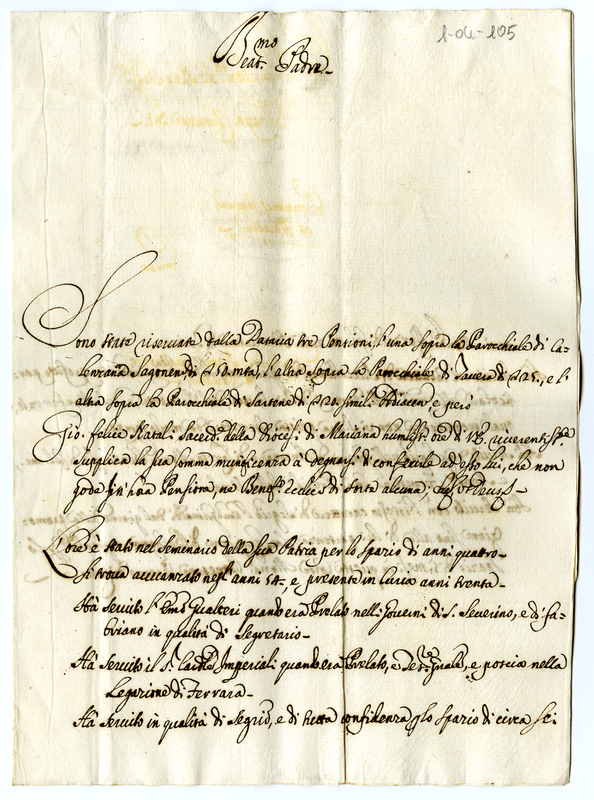 1-04-105
B.mo
Beat. Padre
Sono state riservate dalla Dataria tre Pensioni, l'una sopra la Parocchiale di Ca-
lenzana Sagonen, di 50. mta, l'altra sopra la Parocchiale di 25., e l'
altra sopra la Parocchiale di Sartene di 20. simili Adiacen, e però
Gio. felice Natali Sacerd.e della Diocesi di Mariana humilis.o ore di V.B. riverentem.te
supplica la sua somma munificenza à degnarsi di conferirle ad esso lui, che non
gode fin'hora Pensione, ne Benef.o Eccl.co di sorte alcuna;
L'ore è stato nel Seminario della sua Patria per lo spazio di anni quattro-
Si trova avvanzato negl'anni 54., e presente in Curia anni trenta-
Hà servito l'Em.o Gualteri quando era Prelato nelli Governi di S. Severino, e di fa-
briano in qualità di Segretario-
Hà servito il S.r Card.e Imperiali quando era Prelato, e Tes.re Gnale, e poscia nella
Legazione di Ferrara-
Hà servito in qualità di Segrio, e di tutta confidenza p lo spazio di circa se: